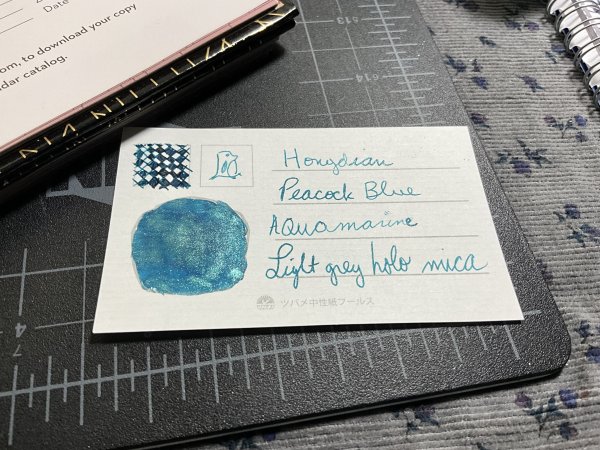 Date
om, to download your copy
dar catalog.
513
614
Hongdian
Peacock Blue
Aquamarine
Light grey holo mica
ツバメ中性紙フールス
74